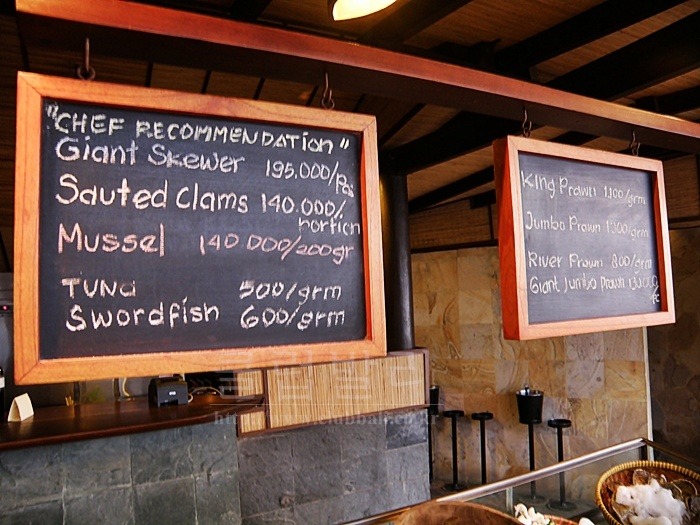 "CHEF RECOMMENDATION"
Giant Skewer 195.000/pc
Sauted Clams 140.000/
portion
Mussel 140.000/200gr
Tuna 500/grm
Swordfish 600/grm
King Prawn 1100/grm
Jumbo Prawn 1300/grm
River Prawn 800/grm
Giant Jumbo Prawn